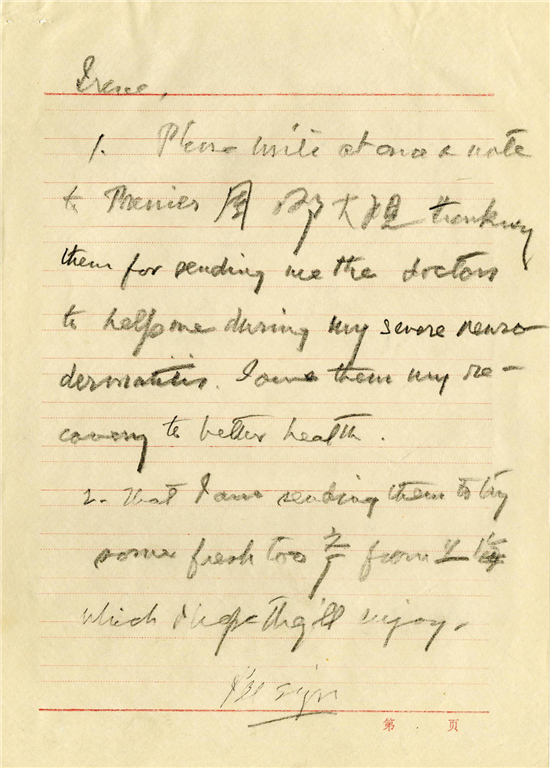 Irene,
1. Please write at once a note
to Premier 周 阿大姐 thanking
them for sending me the doctors
to help me during my severe neuro
dermatitis. I owe them my re-
covery to better health.
2. that I am sending them to try
some fresh from
which I hope they'll enjoy.
I'll sign
第 页